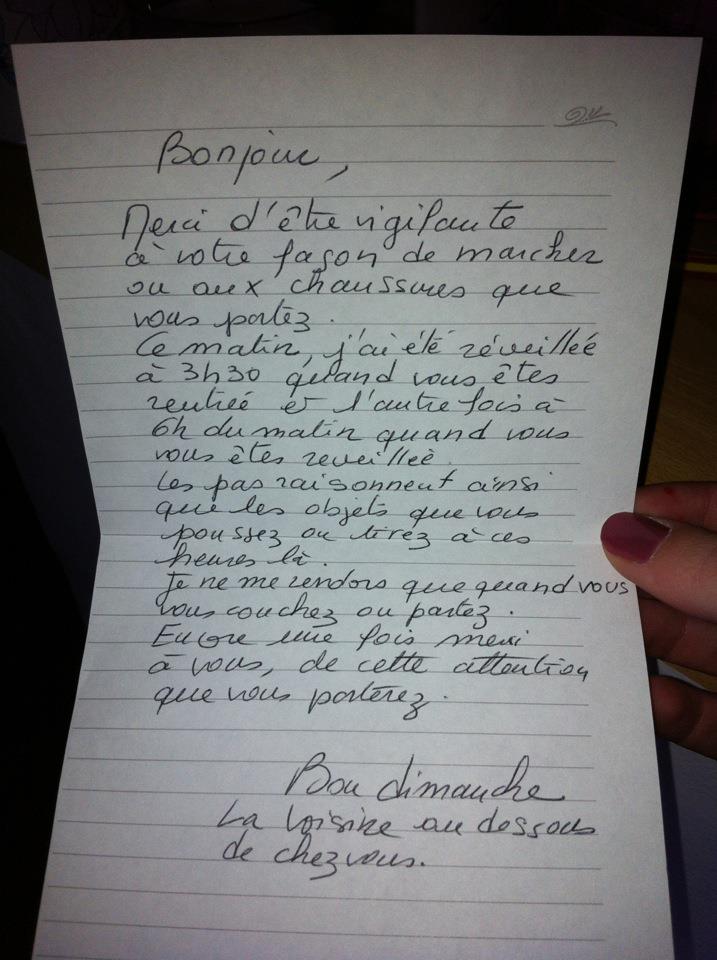 Bonjour,
Merci d'être vigilante
à votre façon de marcher
ou aux chaussures que
vous portez.
Ce matin, j'ai été réveillée
à 3h30 quand vous êtes
rentrée et l'autre fois à
6h du matin quand vous
vous êtes reveillée.
Les pas raisonnent ainsi
que les objets que vous
poussez ou tirez à ces
heures là.
Je ne me rendors que quand vous
vous couchez ou partez.
Encore une fois merci
à vous, de cette attention
que vous porterez.
Bon dimanche
La voisine au dessous
de chez vous.